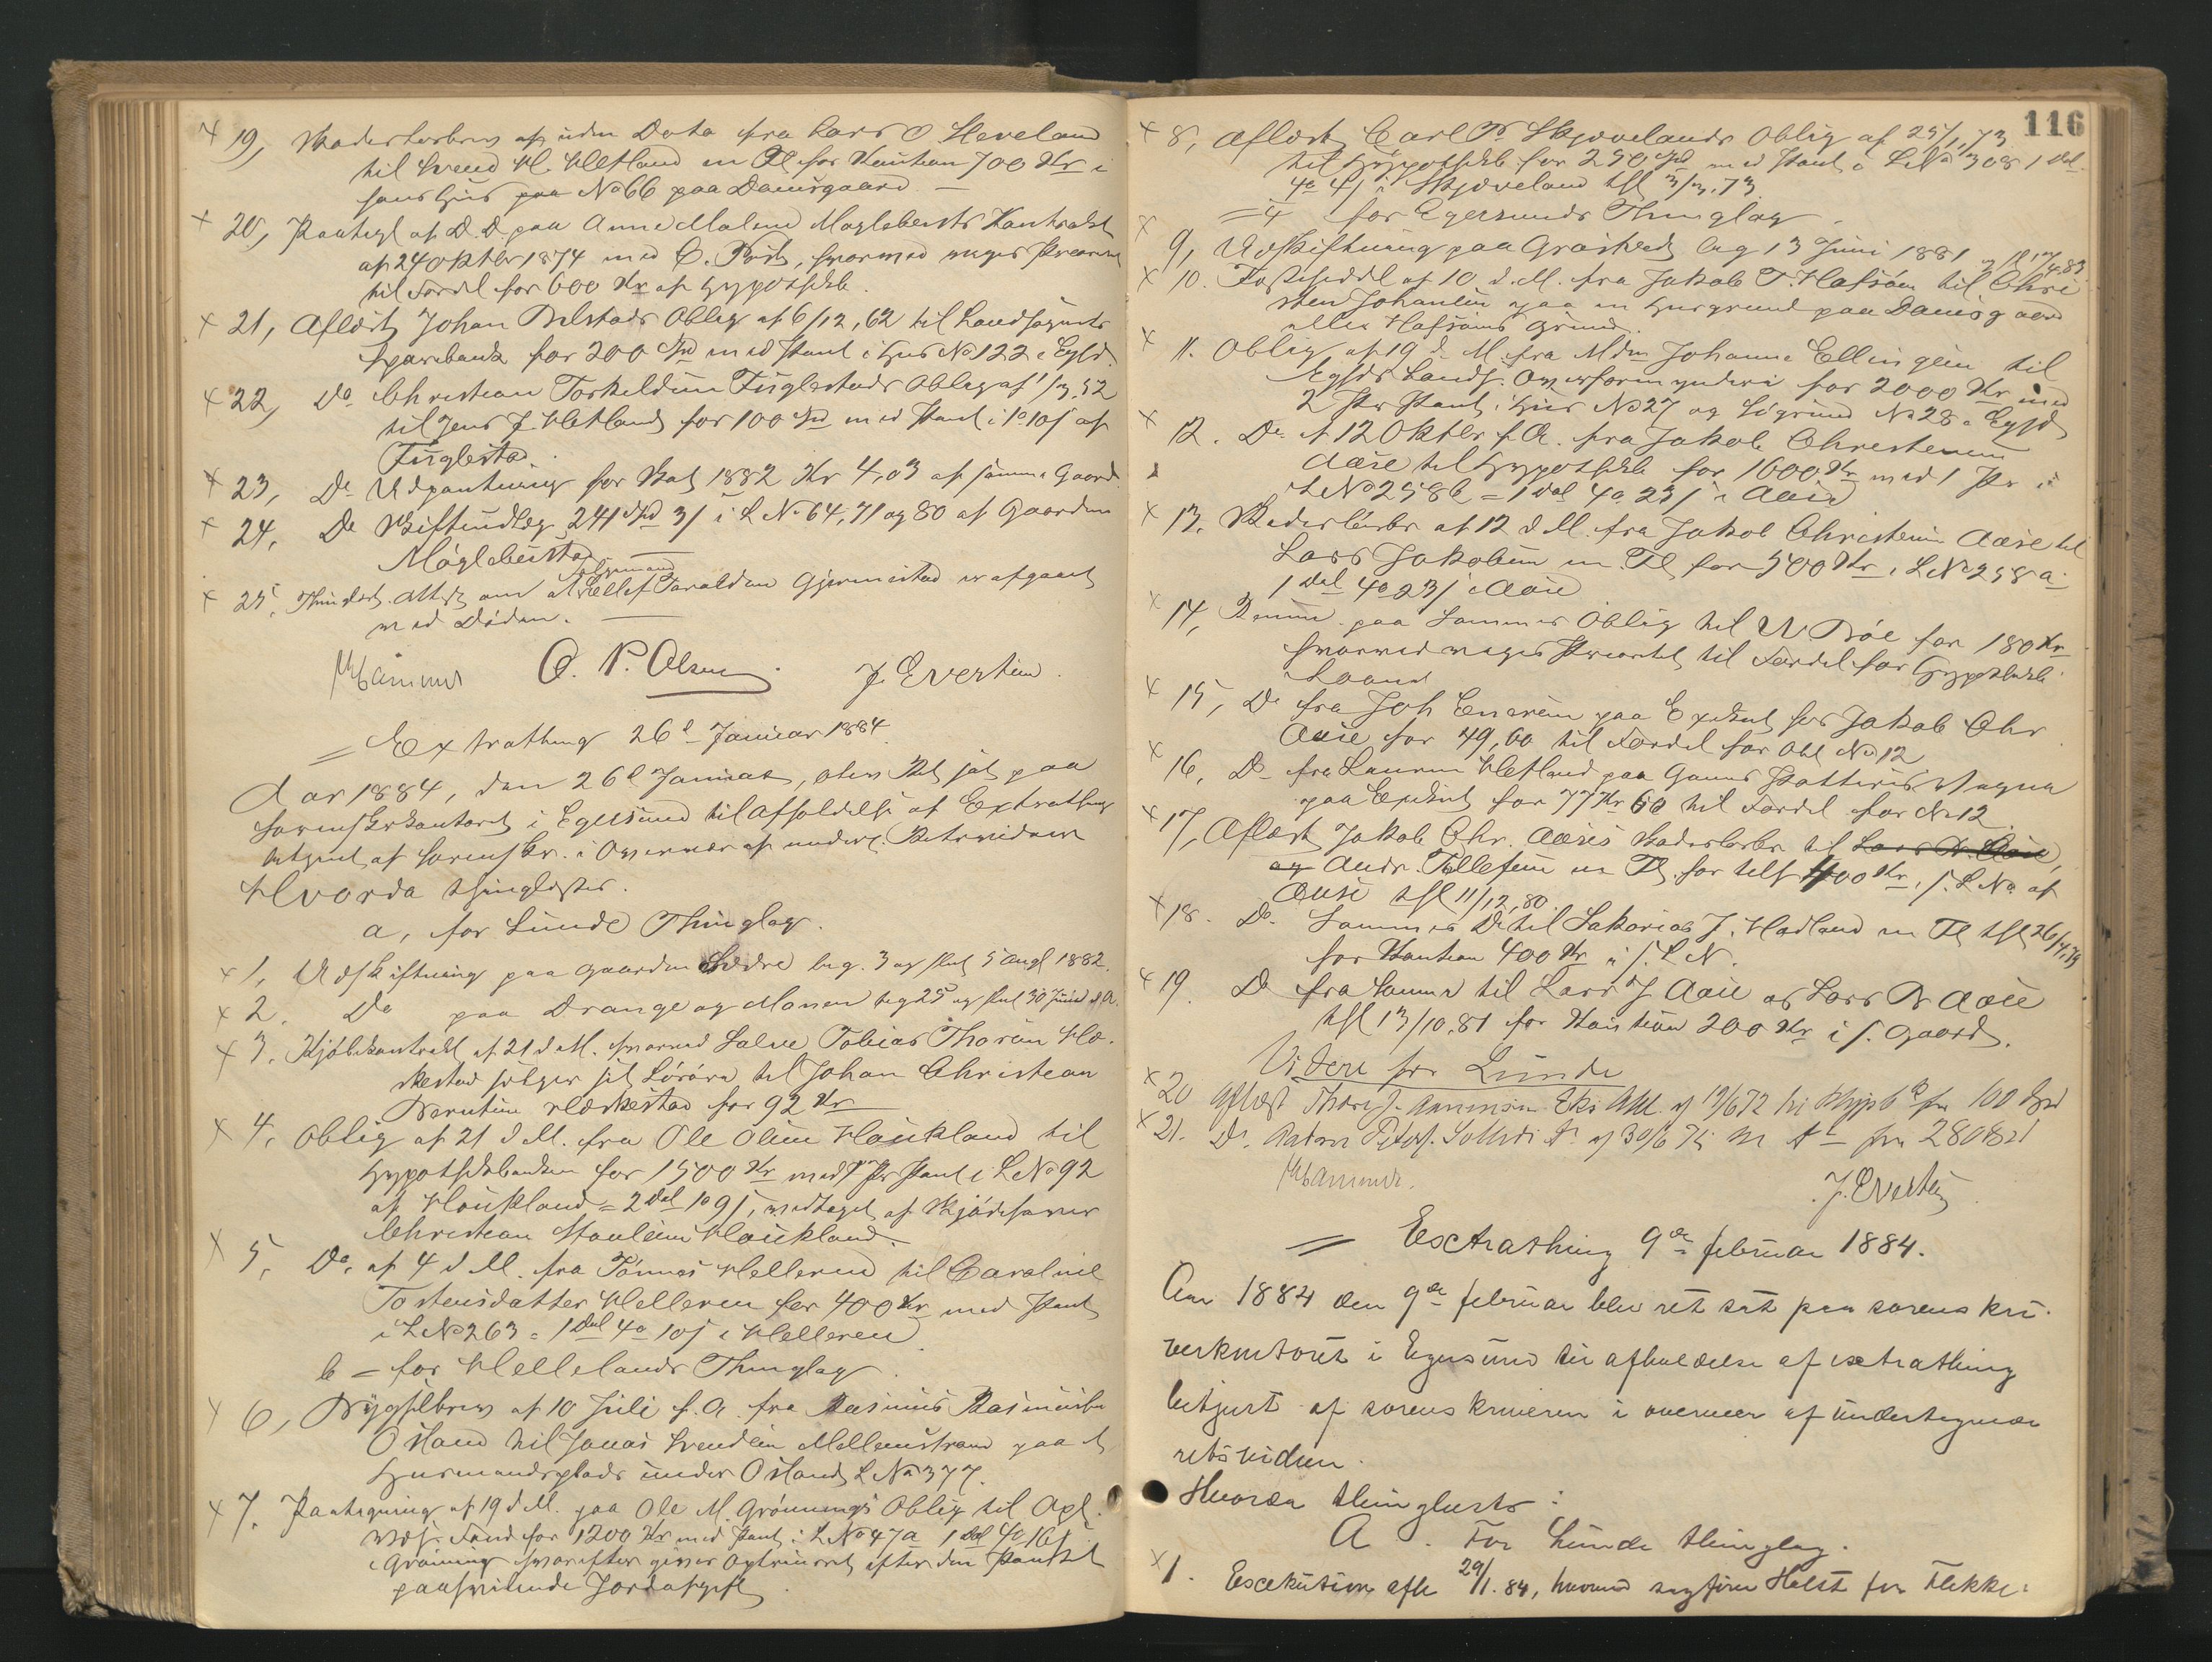 x 19, Skadesløsbrev af uden Dato fra Lars O Heveland
til Svend H. Hetland m Fl for Kaution 700 Kr i
hans Huus paa No 66 paa Damsgaard —
x 20, Paategl af D. D. paa Anne Malene Møglebusts Kontrakt
af 24 Oktbr 1874 med C. Puntervold, hvorved viger Prioritet
til Fordel for 600 Kr af Hypothkb.
x 21, Aflæst Johan Bilstads Oblig af 6/12, 62 til Landsognets
Sparebank for 200 Spd med Pant i Hus No 122 i Egsd
x 22, Do Christian Torkeldsen Fuglestads Oblig af 1/3, 52
til Jens J. Hetland for 100 Spd med Pant i 1o 10 s af
Fuglestad.
x 23, Do Udpantning for Skat 1882 Kr 4,03 af samme Gaard
x 24, Do Skifteudlæg 241 Spd 3 s i L No 64, 71 og 80 af Gaarden
Møglebustad —
x 25, Thinglæst Attest om at Følgemand Tellef Taraldsen Gjermestad er afgaaet
ved Døden. —
Hammer O. P. Olsen J. Evertsen
= Extrathing 26d Januar 1884.
Aar 1884, den 26d Januar, blev Ret sat paa
Sorenskrkontoret i Egersund til Afholdelse af Extrathing
betjent af Sorenskr. i Overvær af underg. Retsvidner
Hvorda thinglæstes.
a, for Lunde Thinglag.
x 1, Udskiftning paa Gaarden Hædre beg. 3 og slut 5 Augt 1882.
x 2. Do paa Drange og Monen beg 25 og slut 30 Juni s. A.
x 3. Kjøbekontrakt af 21 d. M. hvorved Salve Tobias Thorsen Hæ-
skestad sælger sit Løsøre til Johan Christian
Berntsen Hæskestad for 92 Kr
x 4, Oblig af 21 d M. fra Ole Olsen Haukland til
Hypothekbanken for 1500 Kr med 1 Pr Pant i L No 92
af Haukland = 2 Dal 1o 9 s, vedtaget af Skjødehaver
Christian Staalesen Haukland.
x 5. Do. af 4 d M. fra Tønnes Helleren til Caroline
Tostensdatter Helleren for 400 Kr med Pant
i L No 263 = 1 Dal 4o 10 s i Helleren
b = for Hellelands Thinglag
x 6, Bygselbrev af 10 Juli f. A. fra Rasmus Rasmussen
Osland til Jonas Svendsen Mellemstrand paa et
Husmandsplads under Osland L No 377.
x 7. Paategning af 19 d M. paa Ole M. Grønnings Oblig til Opl.
væs. Fond for 1200 Kr med Pant i L No 47a 1 Dal 4o 16 s
i Grøning hvorefter giver Optrinsret efter den Pantet
paahvilende Jordafgift
116
x 8, Aflæst Carl P. Skjævelands Oblig af 25/1, 73
til Hypothkb for 250 Spd med Pant i L No 308 1 Dal
4o 4 s i Skjæveland thl 3/3, 73
= c for Egersunds Thinglag
x 9, Udskiftning paa Graasted beg 13 Juni 1881 og sl 17/4 83
x 10. Fæsteseddel af 10 d. M. fra Jakob T. Hafsøen til Chri
sten Johansen paa en Husgrund paa Damsgaard
eller Hafsøens Grund.
x 11. Oblig af 19 d. M. fra Mdm Johanne Ellingsen til
Egsds Lands. Overformynderi for 2000 Kr med
2 Pr Pant i Hus No 27 og Søgrund No 28 i Egsd
x 12. Do af 12 Oktbr f. A. fra Jakob Christensen
Aase til Hypothkb for 1600 Kr med 1 Pr i
L No 258 b = 1 Dal 4o 23 s i Aase
x 13. Skadesløsbr af 12 d M. fra Jakob Christensen Aase til
Lars Jakobsen m. Fl for 500 Kr i L No 258 a
1 Dal 4o 23 s i Aase
x 14, paa Sammes Oblig til N. Bøe for 180 Kr
hvorved viger Prioritet til Fordel for Hypothkb
Laanet
x 15, Do fra Joh Enersen paa Exekut hos Jakob Chr
Aase for 49,60 til Fordel for Obl No 12
x 16, Do fra Lauren Hetland paa Gamst Potteris Vegne
paa Exekut for 77 Kr 60 til Fordel for No 12
x 17, Aflæst Jakob Chr. Aases Skadesløsbr til Lars R. Aase,
og Andr. Tollefsen m Fl. for tils 400 Kr i s. L No af
Aase thl 11/12, 80.
x 18. Do Sammes Do til Sakarias J. Hadland m Fl thl 26/4, 79
for Kaution 400 Kr i s. L N.
x 19. D fra Samme til Lars J Aase og Lars R Aase
thl 13/10, 81 for Kaution 200 Kr i s. Gaard.
Videre for Lunde
x 20 Aflæst Thore J. Obl. af 19/6 72 til Hypbk for 100 Spd
x 21. Do. af 30/6 75 til do for 280
Hammer. J. Evertsen
= Extrathing 9de februar 1884.
Aar 1884 den 9de februar blev ret sat paa sorenskri-
verkontoret i Egersund til afholdelse af extrathing
betjent af sorenskriveren i overvær af undertegnede
retsvidner.
Hvorda thinglæstes:
A . For Lunde thinglag.
x 1. Excekution afh 29/1. 84, hvorved sagfører Holst for Flekke-